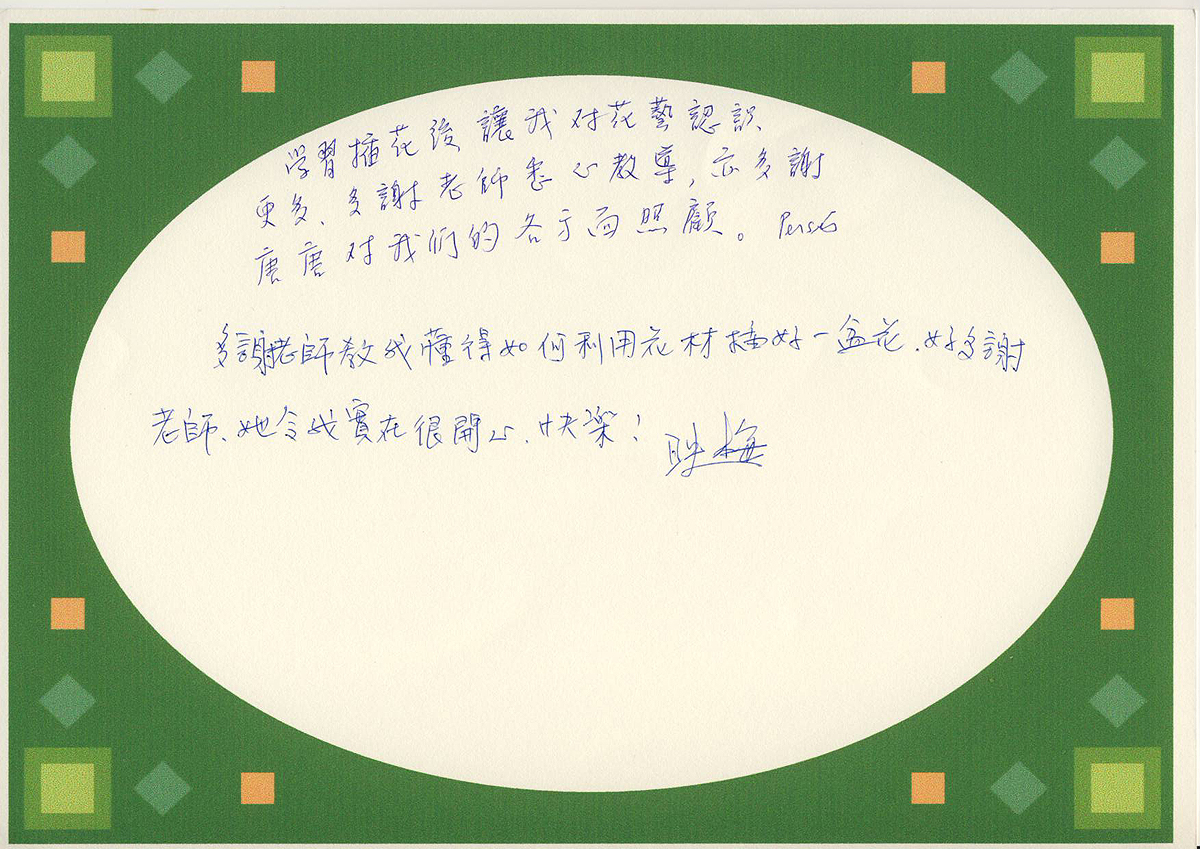 学習插花後讓我对花藝認識
更多、多謝老師悉心教導，亦多謝
唐唐对我们的各方面照顧。
多謝老師教我懂得如何利用花材插好一盆花．好多謝
老師、她令我實在很開心．快樂！
映梅